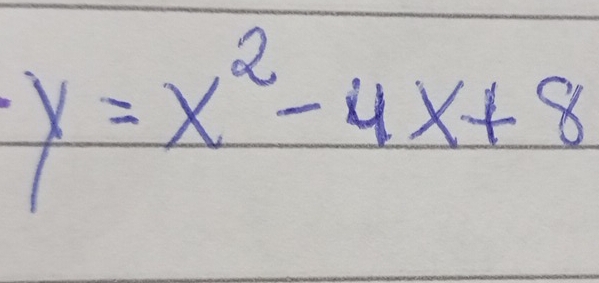 y = x² - 4x + 8